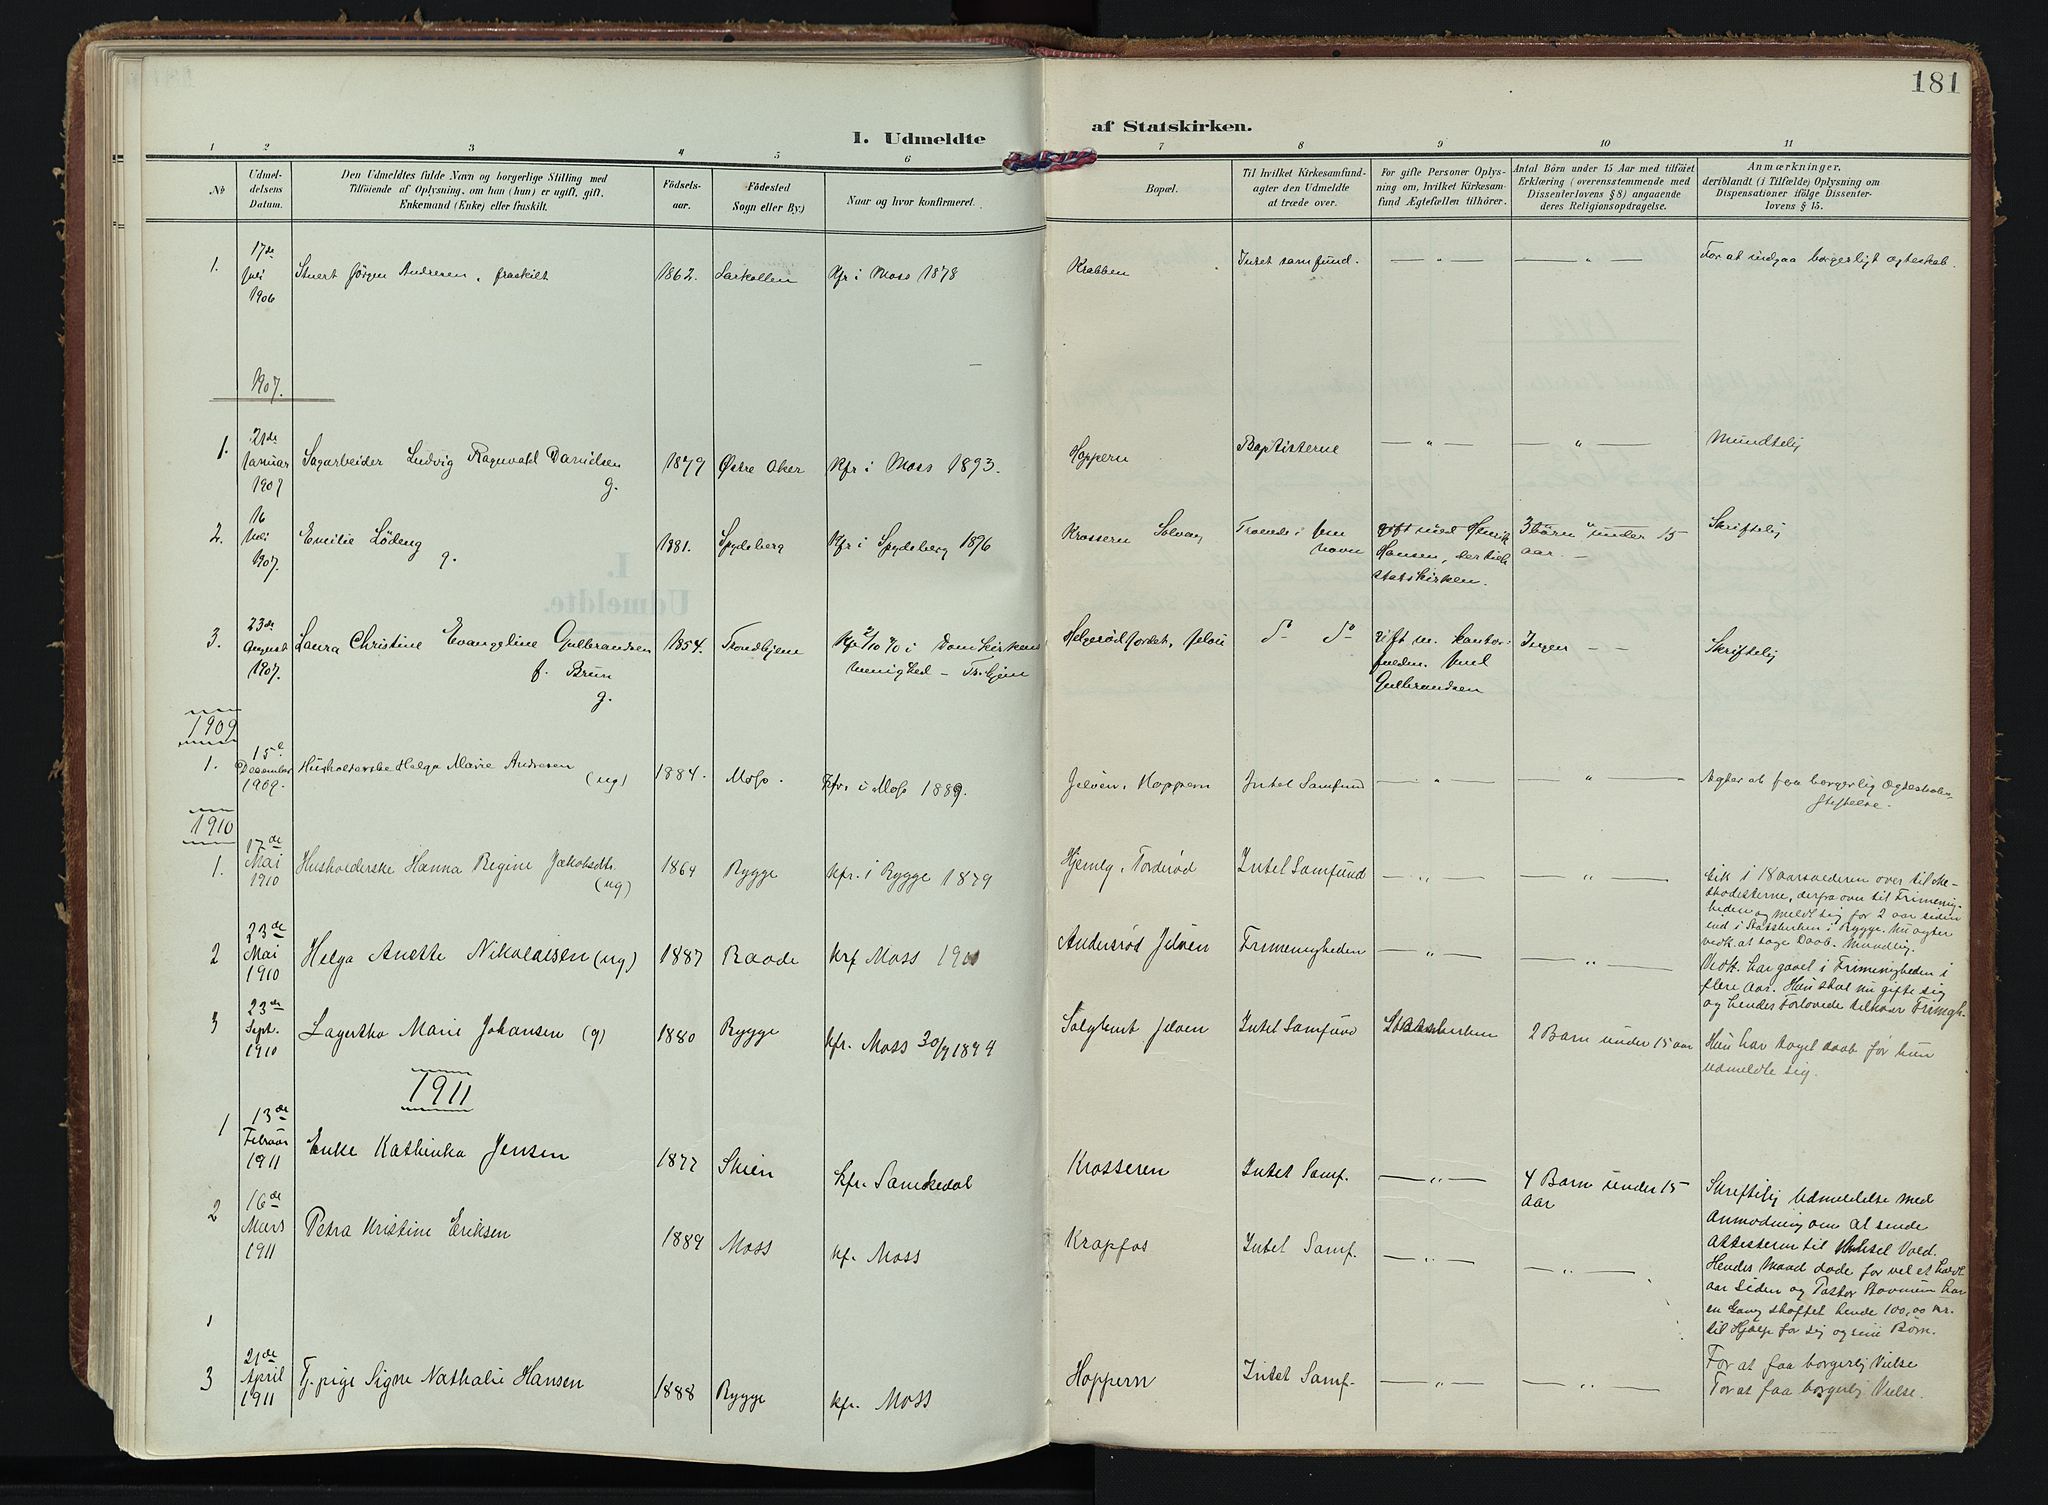 181
I. Udmeldte af Statskirken.
1 2 3 4 5 6 7 8 9 10 11
No
Udmel-
delsens
Datum.
Den Udmeldtes fulde Navn og borgerlige Stilling med
Tilföiende af Oplysning, om han (hun) er ugift, gift,
Enkemand (Enke) eller fraskilt.
Födsels-
aar.
Födested
Sogn eller By.)
Naar og hvor konfirmeret.
Bopæl.
Til hvilket Kirkesamfund-
agter den Udmeldte
at træde over.
For gifte Personer Oplys-
ning om, hvilket Kirkesam-
fund Ægtefællen tilhörer.
Antal Börn under 15 Aar med tilföiet
Erklæring (overensstemmende med
Dissenterlovens § 8) angaaende
deres Religionsopdragelse.
Anmærkninger,
deriblandt (i Tilfælde) Oplysning om
Dispensationer ifölge Dissenter-
lovens § 15.
1.
17de
Juli
1906
Jörgen Andresen, fraskilt
1862.
Larkollen
Kfr i Moss 1878
Krabben
Intet samfund.
— „ —
— „ —
For at indgaa borgerligt ægteskab.
1907.
1.
21de
Januar
1907
Sagarbeider Ludvig Ragnvald Danielsen
g.
1879
Østre Aker
Kfr i Moss 1893.
Hoppern
Baptisterne
— „ —
— „ —
Mundtelig
2.
16
Juli
1907.
Emilie Lödeng
g.
1881.
Spydeberg
Kfr i Spydeberg 1896
Krossern Solvang
Troende i Jesu
navn
gift med Henrik
Hansen, der tilh.
statskirken.
3 börn under 15
aar. —
Skriftelig
3.
23de
August
1907.
Laura Christine Evangeline Gulbrandsen
f. Brun
g.
1854.
Trondhjem
Kfr 2/10 70 i Domkirkens
menighed – Tr.hjem
Helgerödjordet, Jelöi
do do
gift m. kontor-
Gulbrandsen
Ingen — —
Skriftelig
1909
1.
15de
Desember
1909.
Husholderske Helga Marie Andresen
(ug)
1884.
Moss.
Kfr. i Moss 1889.
Jelöen, Hoppern
Intet Samfund
— „ —
— „ —
Agter at faa borgerlig Ægteskabs-
stiftelse.
1910
1.
17de
Mai
1910
Husholderske Hanna Regine Jakobsdtr.
(ug)
1864
Rygge
kfr. i Rygge 1879
Hjemly, Torderöd
Intet Samfund
— „ —
— „ —
Gik i 18 aarsalderen over til Me-
thodisterne, derfra over til Frimenig-
heden og meldt sig for 2 aar siden
ind i Statskirken i Rygge. Nu agter
vedk. at tage Daab. Mundlig.
2
23de
Mai
1910
Helga Anette Nikolaisen (ug)
1887
Raade
krf Moss 1901
Anderöd Jelöen
Frimenigheden
— „ —
— „ —
Vedk. har gaaet i Frimenigheden i
flere Aar. Hun skal nu gifte sig
og hendes Forlovede tilhører Frimgh.
3
23de
Sept.
1910
Lagertha Marie Johansen (g)
1880
Rygge
kfr. Moss 30/9 1894
Solglemt Jelöen
Intet Samfund
Statskirken
2 Barn under 15 aar
Hun har taget daab før hun
udmeldte sig.
1911
1
13de
Februar
1911
Enke Kathinka Jensen
1877
Skien
kfr. Sannikedal
Krosseren
Intet Samf.
— „ —
4 Barn under 15
aar
Skriftelig Udmeldelse med
Anmodning om at sende
Attesterne til Vold.
Hendes Mand døde for vel et halvt
aar siden og Pastor har
en Gang skaffet hende 100,00 kr.
til Hjælp for sig og sine Børn.
2
16de
Mars
1911
Petra Kristine Eriksen
1889
Moss
kfr. Moss
Krapfos
Intet Samf.
— „ —
— „ —
For at faa borgerlig Vielse
1
3
21de
April
1911
Tj.pige Signe Nathalie Hansen
1888
Rygge
kfr. Moss
Hoppern
Intet Samf.
— „ —
— „ —
For at faa borgerlig Vielse.